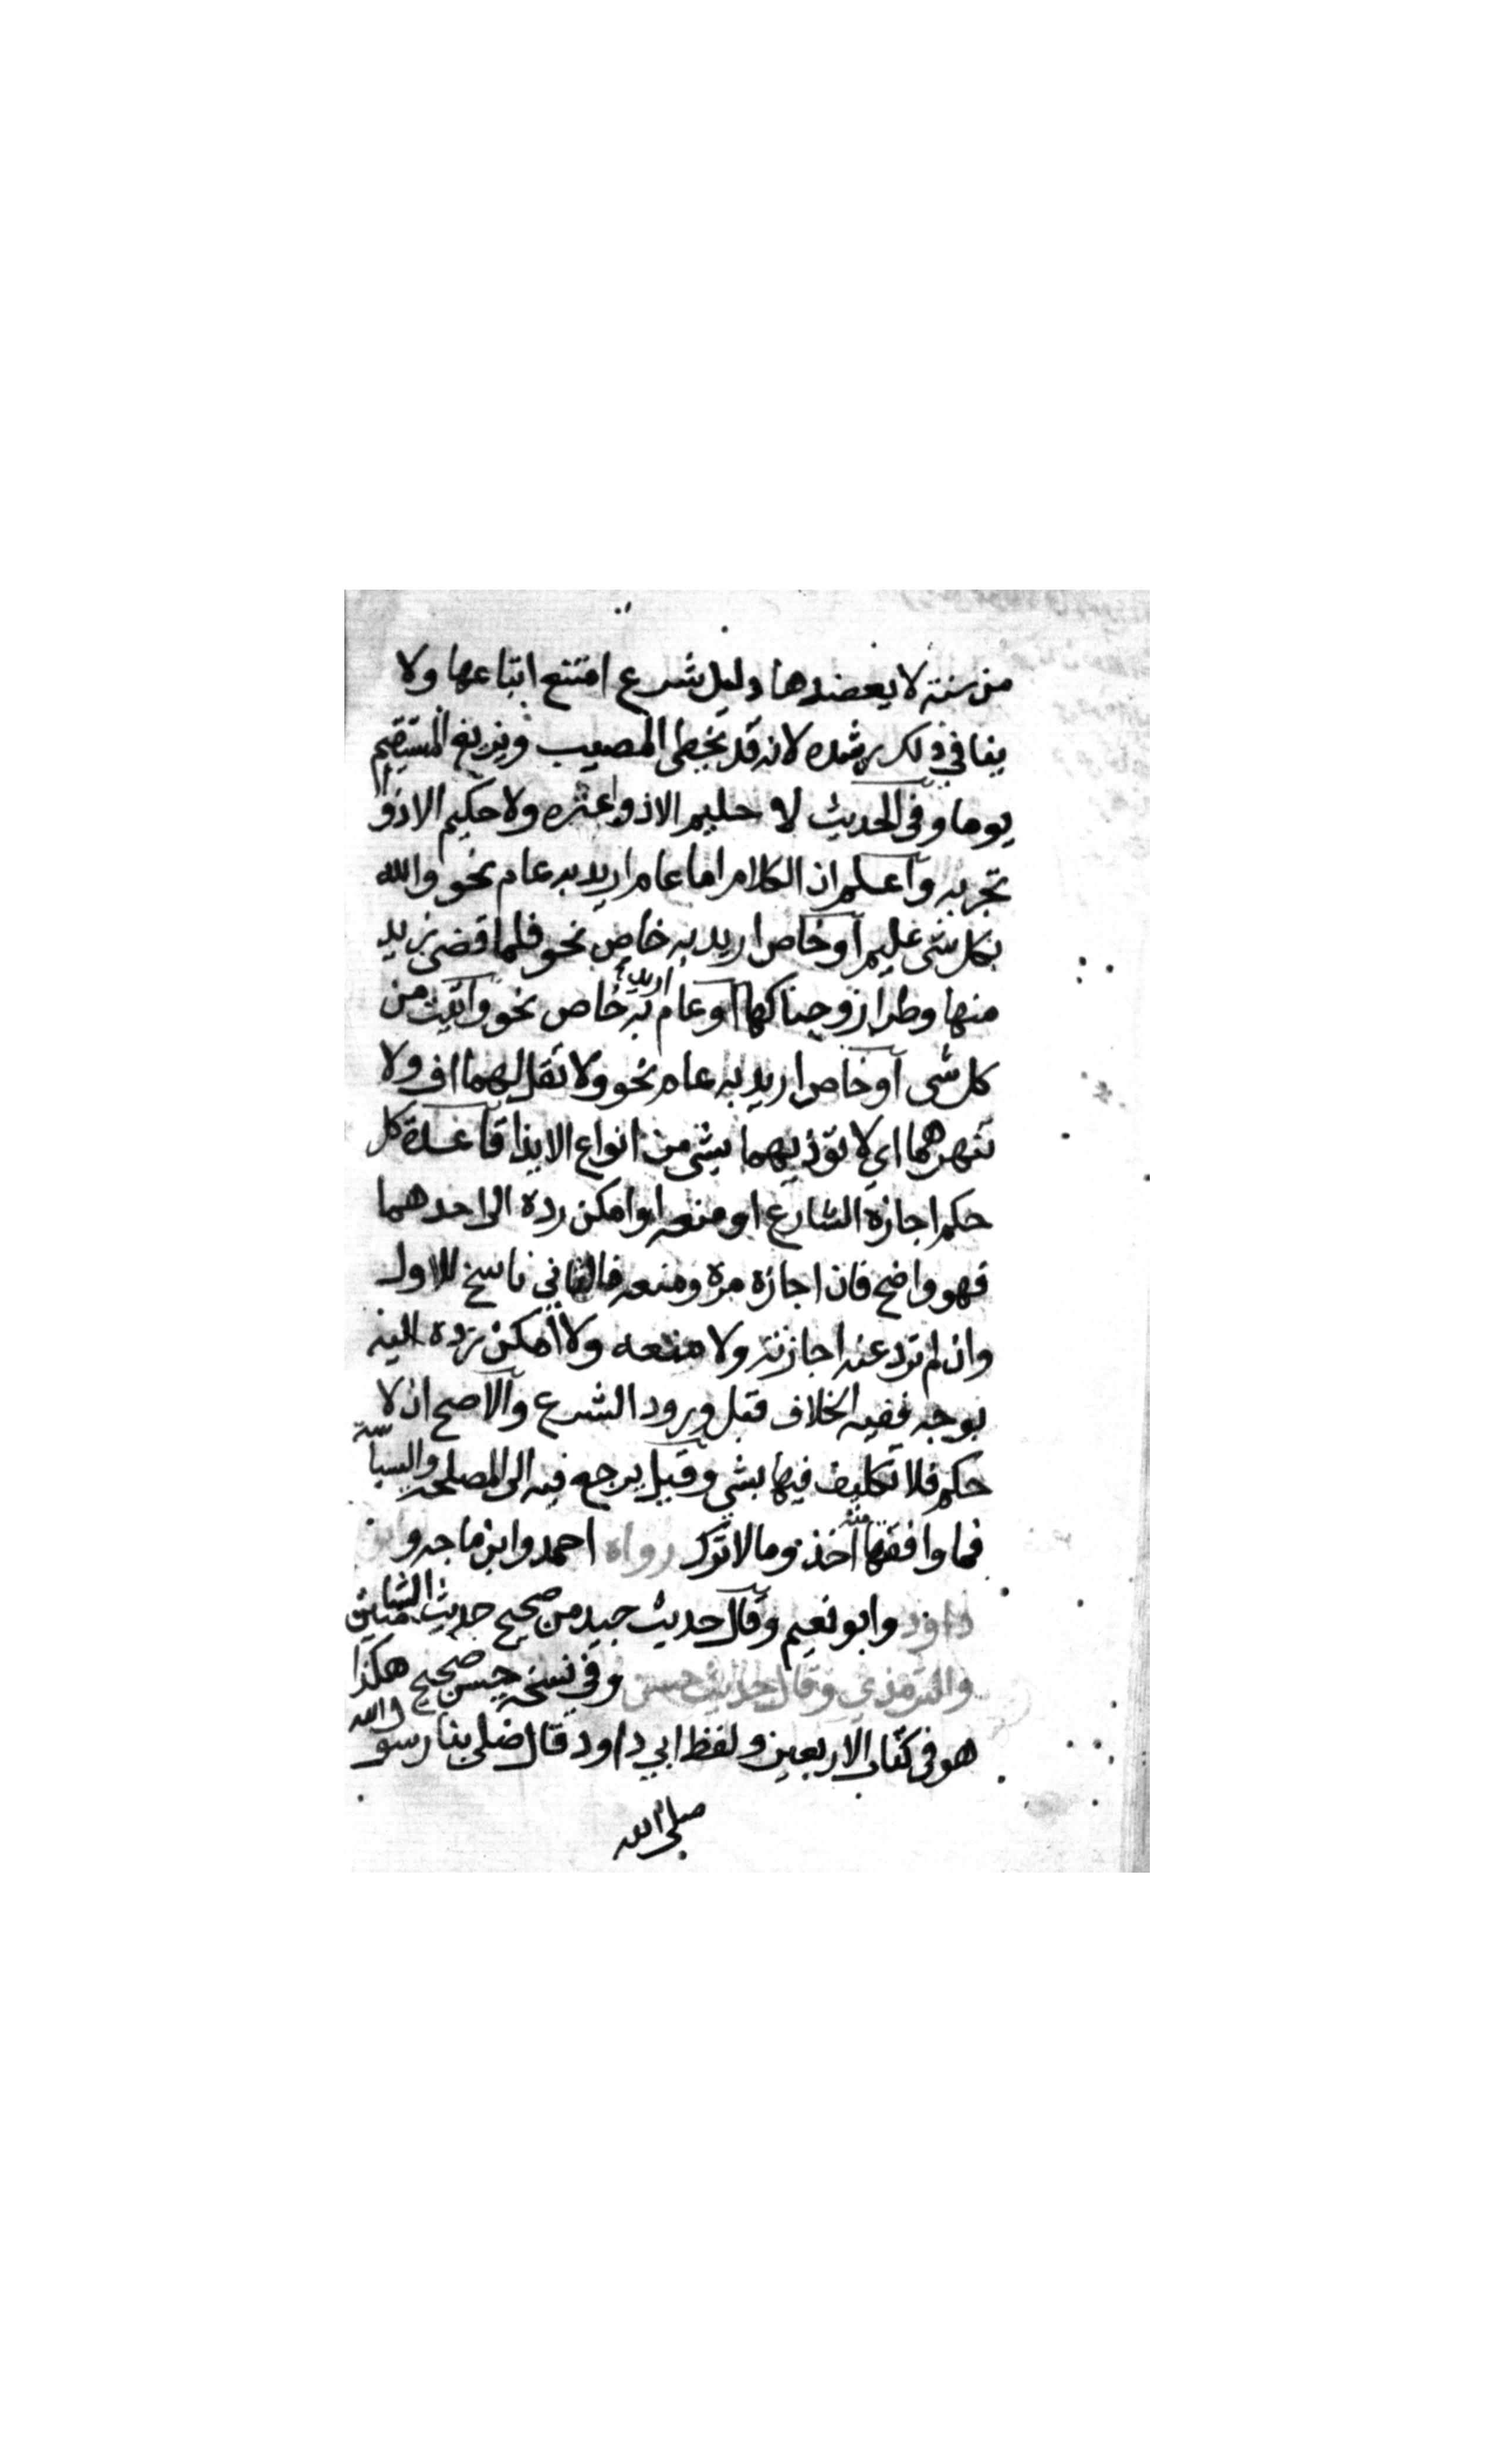 من سنة لا يعضدها دليل شرع امتنع اتباعها ولا
ينافي ذلك رشده لانه قد يخطي المصيب ويزيغ المستقيم
يوما وفي الحديث لا حليم الا ذو عثره ولا حكيم الا ذو
تجربه واعلم ان الكلام اما عام اريد به عام نحو والله
بكل شي عليم او خاص اريد به خاص نحو فلما قضى زيد
منها وطرا زوجناكها او عام اريد به خاص نحو واتيت من
كل شي او خاص اريد به عام نحو ولا تقل لهما اف ولا
تنهرهما اي لا توذيهما بشي من انواع الايذا قاعدة كل
حكم اجازه الشارع او منعه او امكن رده الى احدهما
فهو واضح فان اجازه مرة ومنعه فالثاني ناسخ للاول
وان لم ترد عنه اجازته ولا منعه ولا امكن رده اليه
بوجه ففيه الخلاف قبل ورود الشرع والاصح ان لا
حكم فلا تكليف فيها بشي وقيل يرجع فيه الى المصلحه والسياسة
فما وافقها منه اخذ وما لا ترك رواه احمد وابن ماجه و
داود وابو نعيم وقال حديث جيد من صحيح حديث الشاميين
والترمذي وقال حديث حسن وفي نسخه حسن صحيح هكذا
هو في كتاب الاربعين ولفظ ابي داود قال صلى بنا رسول الله
صلى الله